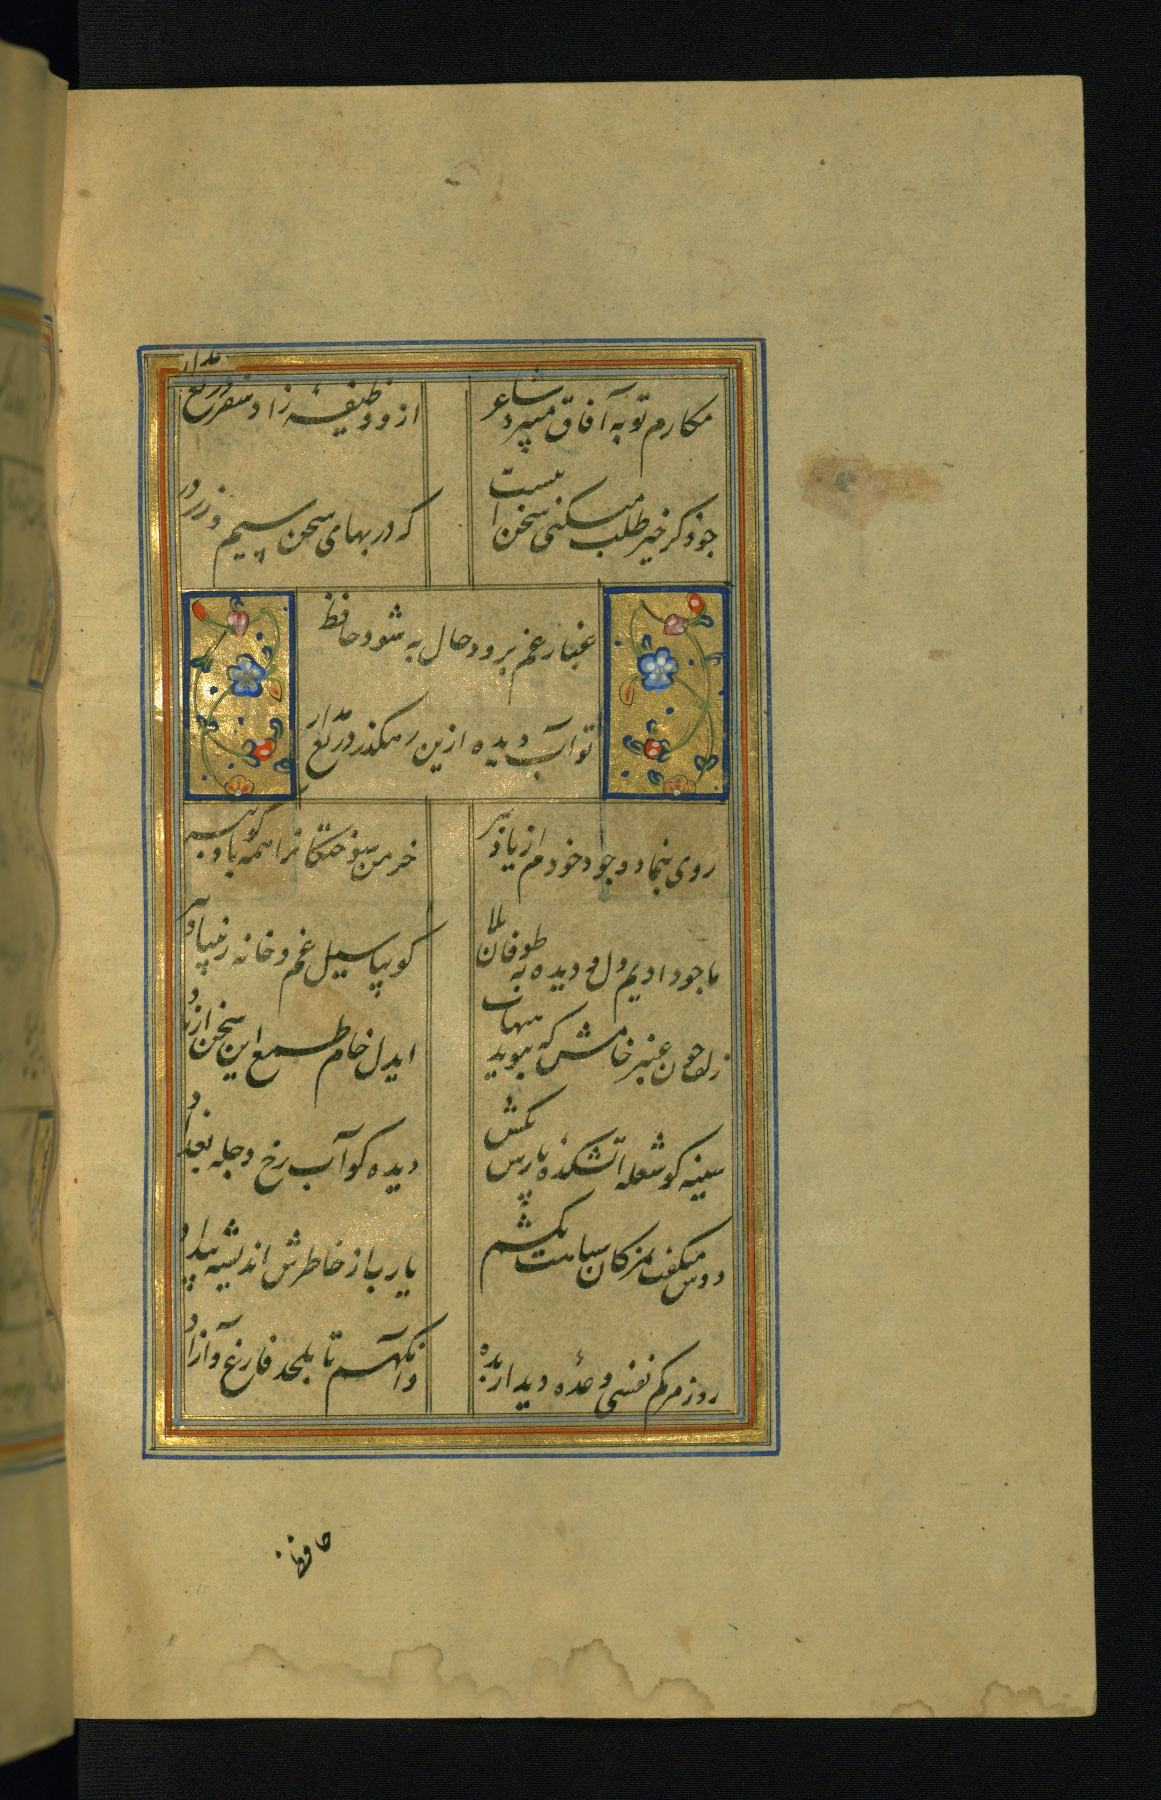 مکارم تو به آفاق میبرد شاعر
ازو وظیفهٔ زاد سفر دریغ مدار
جو ذکر خیر طلب میکنی سخن اینست
که در بهای سخن سیم و زر دریغ
غبار غم برود حال به شود حافظ
تو آب دیده ازین رهگذر دریغ مدار
روی بنما و وجود خودم از یاد ببر
خرمن سوختگانرا همه کو باد ببر
ما جو دادیم دل و دیده به طوفان بلا
کو بیا سیل غم و خانه ز بنیاد ببر
زلف جون عنبر خامش که ببوید هیهات
ایدل خام طمع این سخن از یاد
سینه کو شعله اتشکدهٔ پارس بکش
دیده کو آب رخ دجله بغداد
دوش میکفت بمژکان سیاهت بکشم
یارب از خاطرش اندیشه بیداد ببر
روز مرکم نفسی وعدهٔ دیدار بده
وانکهم تا بلحد فارغ و آزاد
حافظ